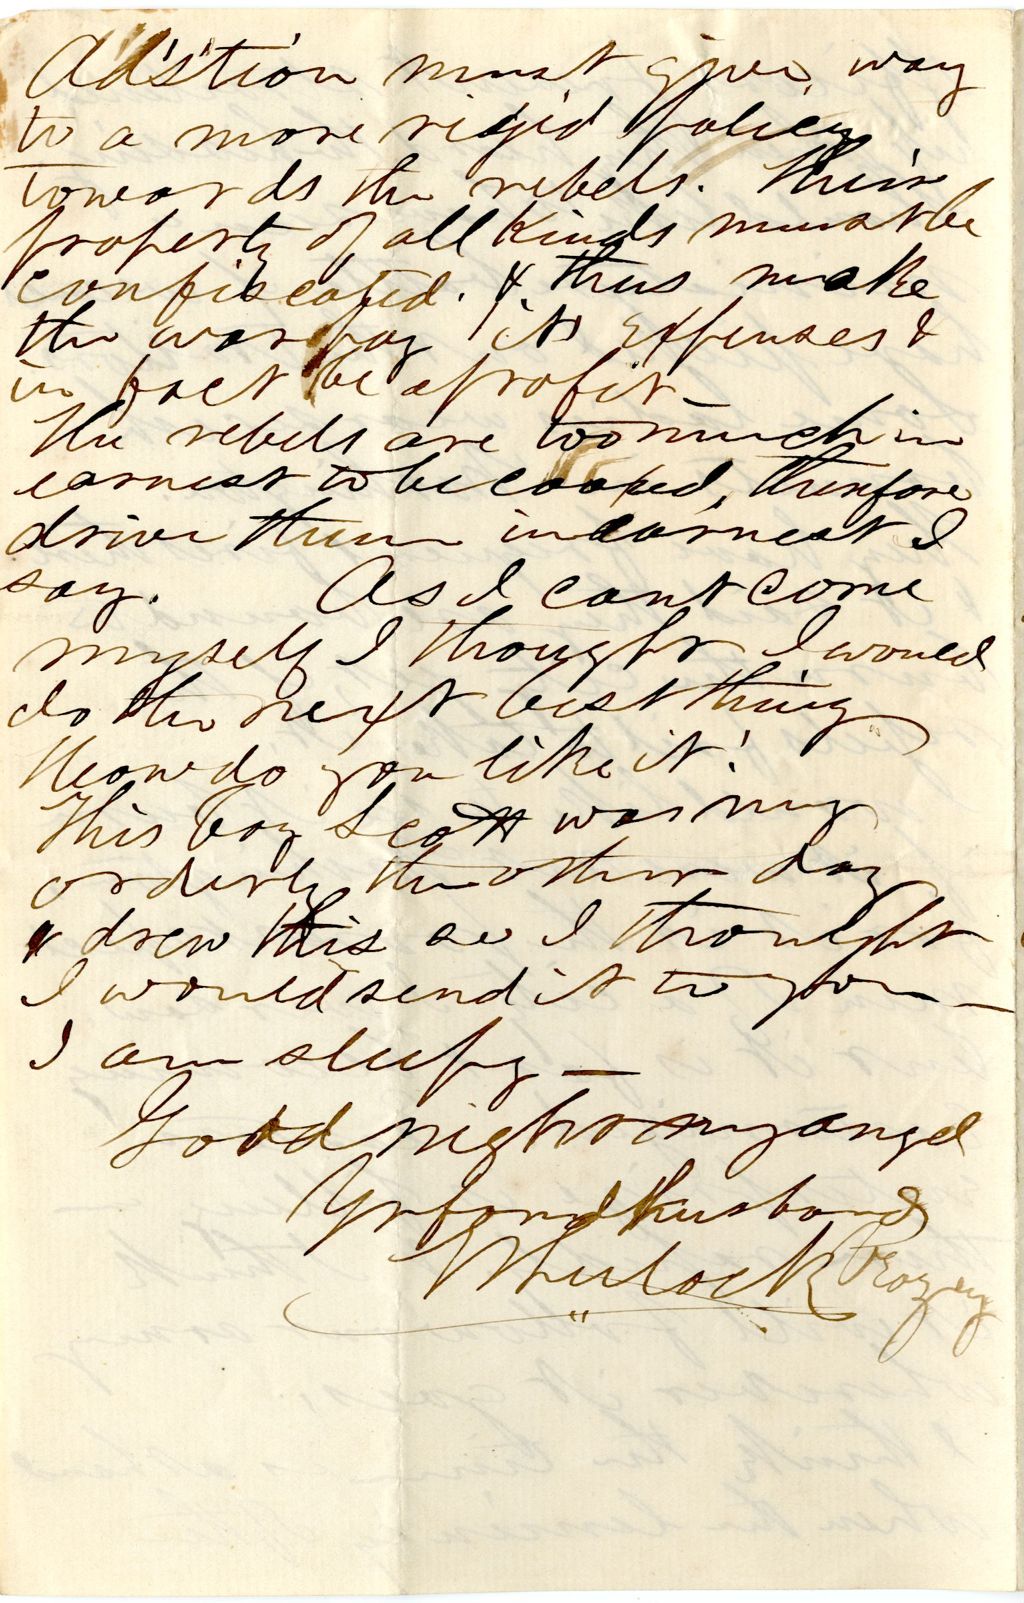 Ad's'tion must give way
to a more rigid policy
towards the rebels. Their
property of all Kinds must be
confiscated. & thus make
the war pay its expenses &
in fact be a profit_
The rebels are too much in
earnest to be coaxed, therefore
drive them in earnest I
say. As I cant come
myself I thought I would
do the next best thing
How do you like it!
This boy Scott was my
orderly the other day
& drew this so I thought
I would send it to you_
I am sleepy_
Good night my angel
Yr fond Husband
Wheelock